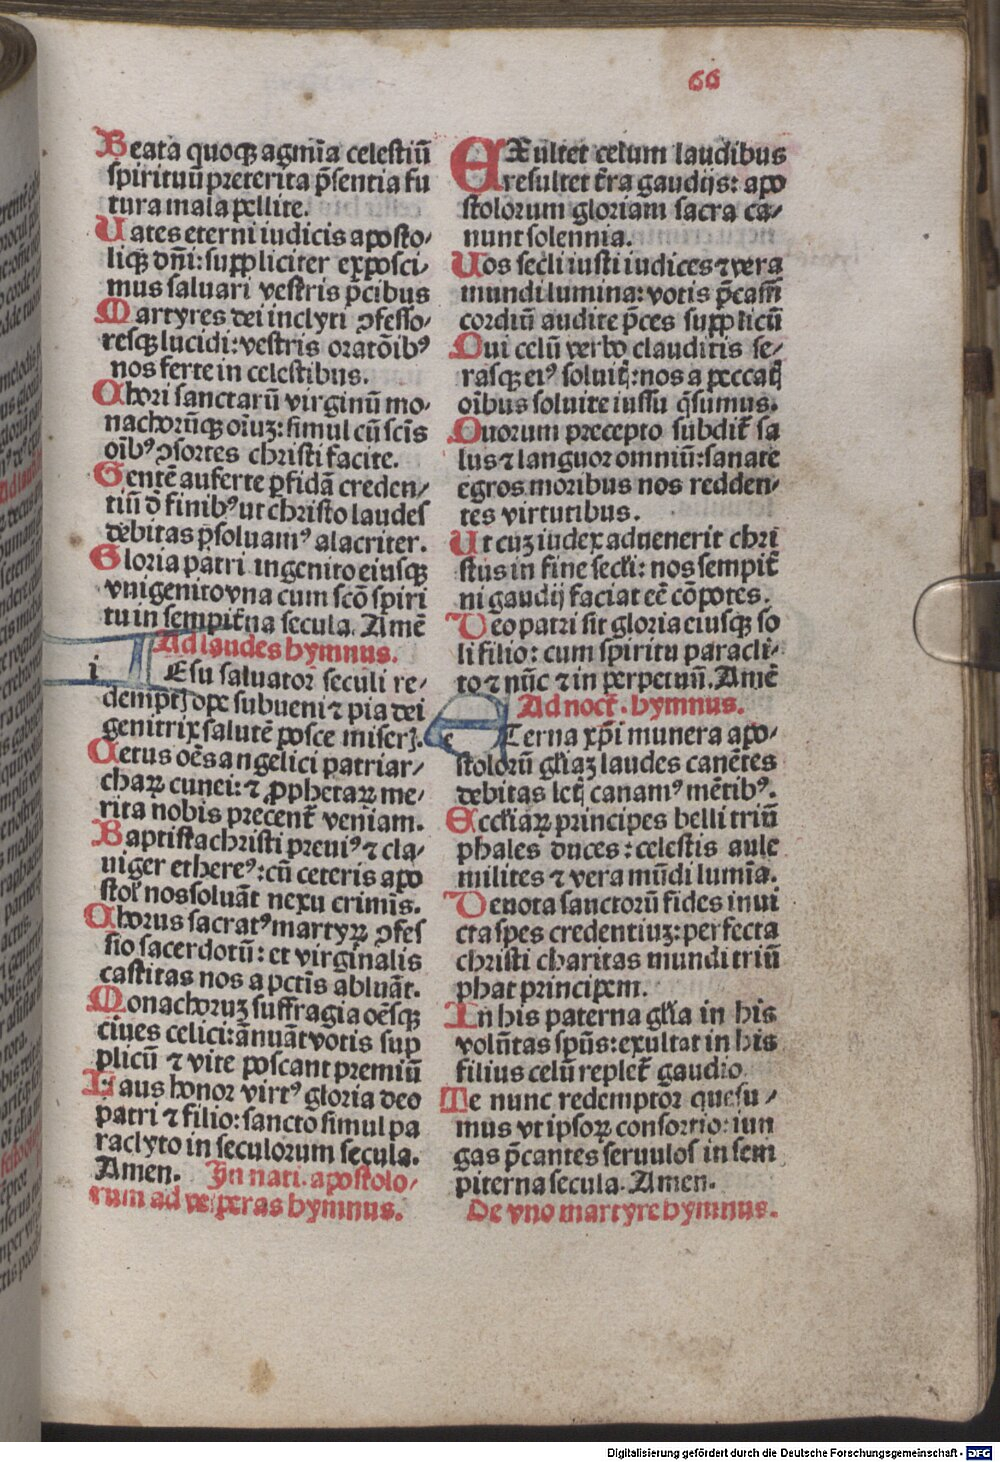 66
Beata quoqꝫ agmīa celestiū
spirituū preterita p̄sentia fu
tura mala pellite.
Uates eterni iudicis aposto-
liqꝫ dn̄i: suppliciter exposci-
mus saluari vestris p̄cibus
Martyres dei inclyti ꝯfesso-
resqꝫ lucidi: vestris oratōibꝰ
nos ferte in celestibus.
Chori sanctarū virginū mo-
nachorūqꝫ oīuꝫ: simul cū scīs
oībꝰ ꝯsortes christi facite.
Gentē auferte ꝑfidā creden-
tiū ō finibꝰ ut christo laudes
debitas ꝑsoluamꝰ alacriter.
Gloria patri ingenito eiusqꝫ
vnigenito vna cum scō spiri
tu in sempit̄na secula. Amē
Ad laudes hymnus.
i Esu saluator seculi re-
demptꝭ ope subueni ⁊ pia dei
genitrix salutē posce miserꝭ.
Cetus oēs angelici patriar-
charꝝ cunei: ⁊ ꝓphetarꝝ me-
rita nobis precent̄ veniam.
Baptista christi preuiꝰ ⁊ cla-
uiger ethereꝰ: cū ceteris apo
stol̄ nos soluāt nexu crimīs.
Chorus sacratꝰ martyrꝝ ꝯfes
sio sacerdotū: et virginalis
castitas nos a pctīs abluāt.
Monachoruꝫ suffragia oēsqꝫ
ciues celici: ānuāt votis sup
plicū ⁊ vite poscant premiū
Laus honor virtꝰ gloria deo
patri ⁊ filio: sancto simul pa
raclyto in seculorum secula.
Amen. In nati. apostolo-
rum ad vesperas hymnus.
EXultet celum laudibus
resultet t̄ra gaudijs: apo
stolorum gloriam sacra ca-
nunt solennia.
Uos secli iusti iudices ⁊ vera
mundi lumina: votis p̄cam̄
cordiū audite p̄ces supplicū
Qui celū verbo clauditis se-
rasqꝫ eiꝰ soluitꝭ: nos a peccatꝭ
oībus soluite iussu q̄sumus.
Quorum precepto subdit̄ sa
lus ⁊ languor omniū: sanate
egros moribus nos redden-
tes virtutibus.
Ut cuꝫ iudex aduenerit chri
stus in fine secli: nos sempit̄
ni gaudij faciat eē cōpotes.
Deo patri sit gloria eiusqꝫ so
li filio: cum spiritu paracli-
to ⁊ nūc ⁊ in perpetuū. Amē
Ad noct̄. hymnus.
e Terna xp̄i munera apo-
stolorū gl̄iaꝫ laudes canētes
debitas letꝭ canamꝰ mētibꝰ.
Eccl̄iarꝝ principes belli triū
phales duces: celestis aule
milites ⁊ vera mūdi lumīa.
Deuota sanctorū fides inui
cta spes credentiuꝫ: perfecta
christi charitas mundi triū
phat principem.
In his paterna gl̄ia in his
volūtas spūs: exultat in his
filius celū replet̄ gaudio
Te nunc redemptor quesu-
mus vt ipsorꝝ consortio: iun
gas p̄cantes seruulos in sem
piterna secula. Amen.
De vno martyre hymnus.
Digitalisierung gefördert durch die Deutsche Forschungsgemeinschaft - DFG